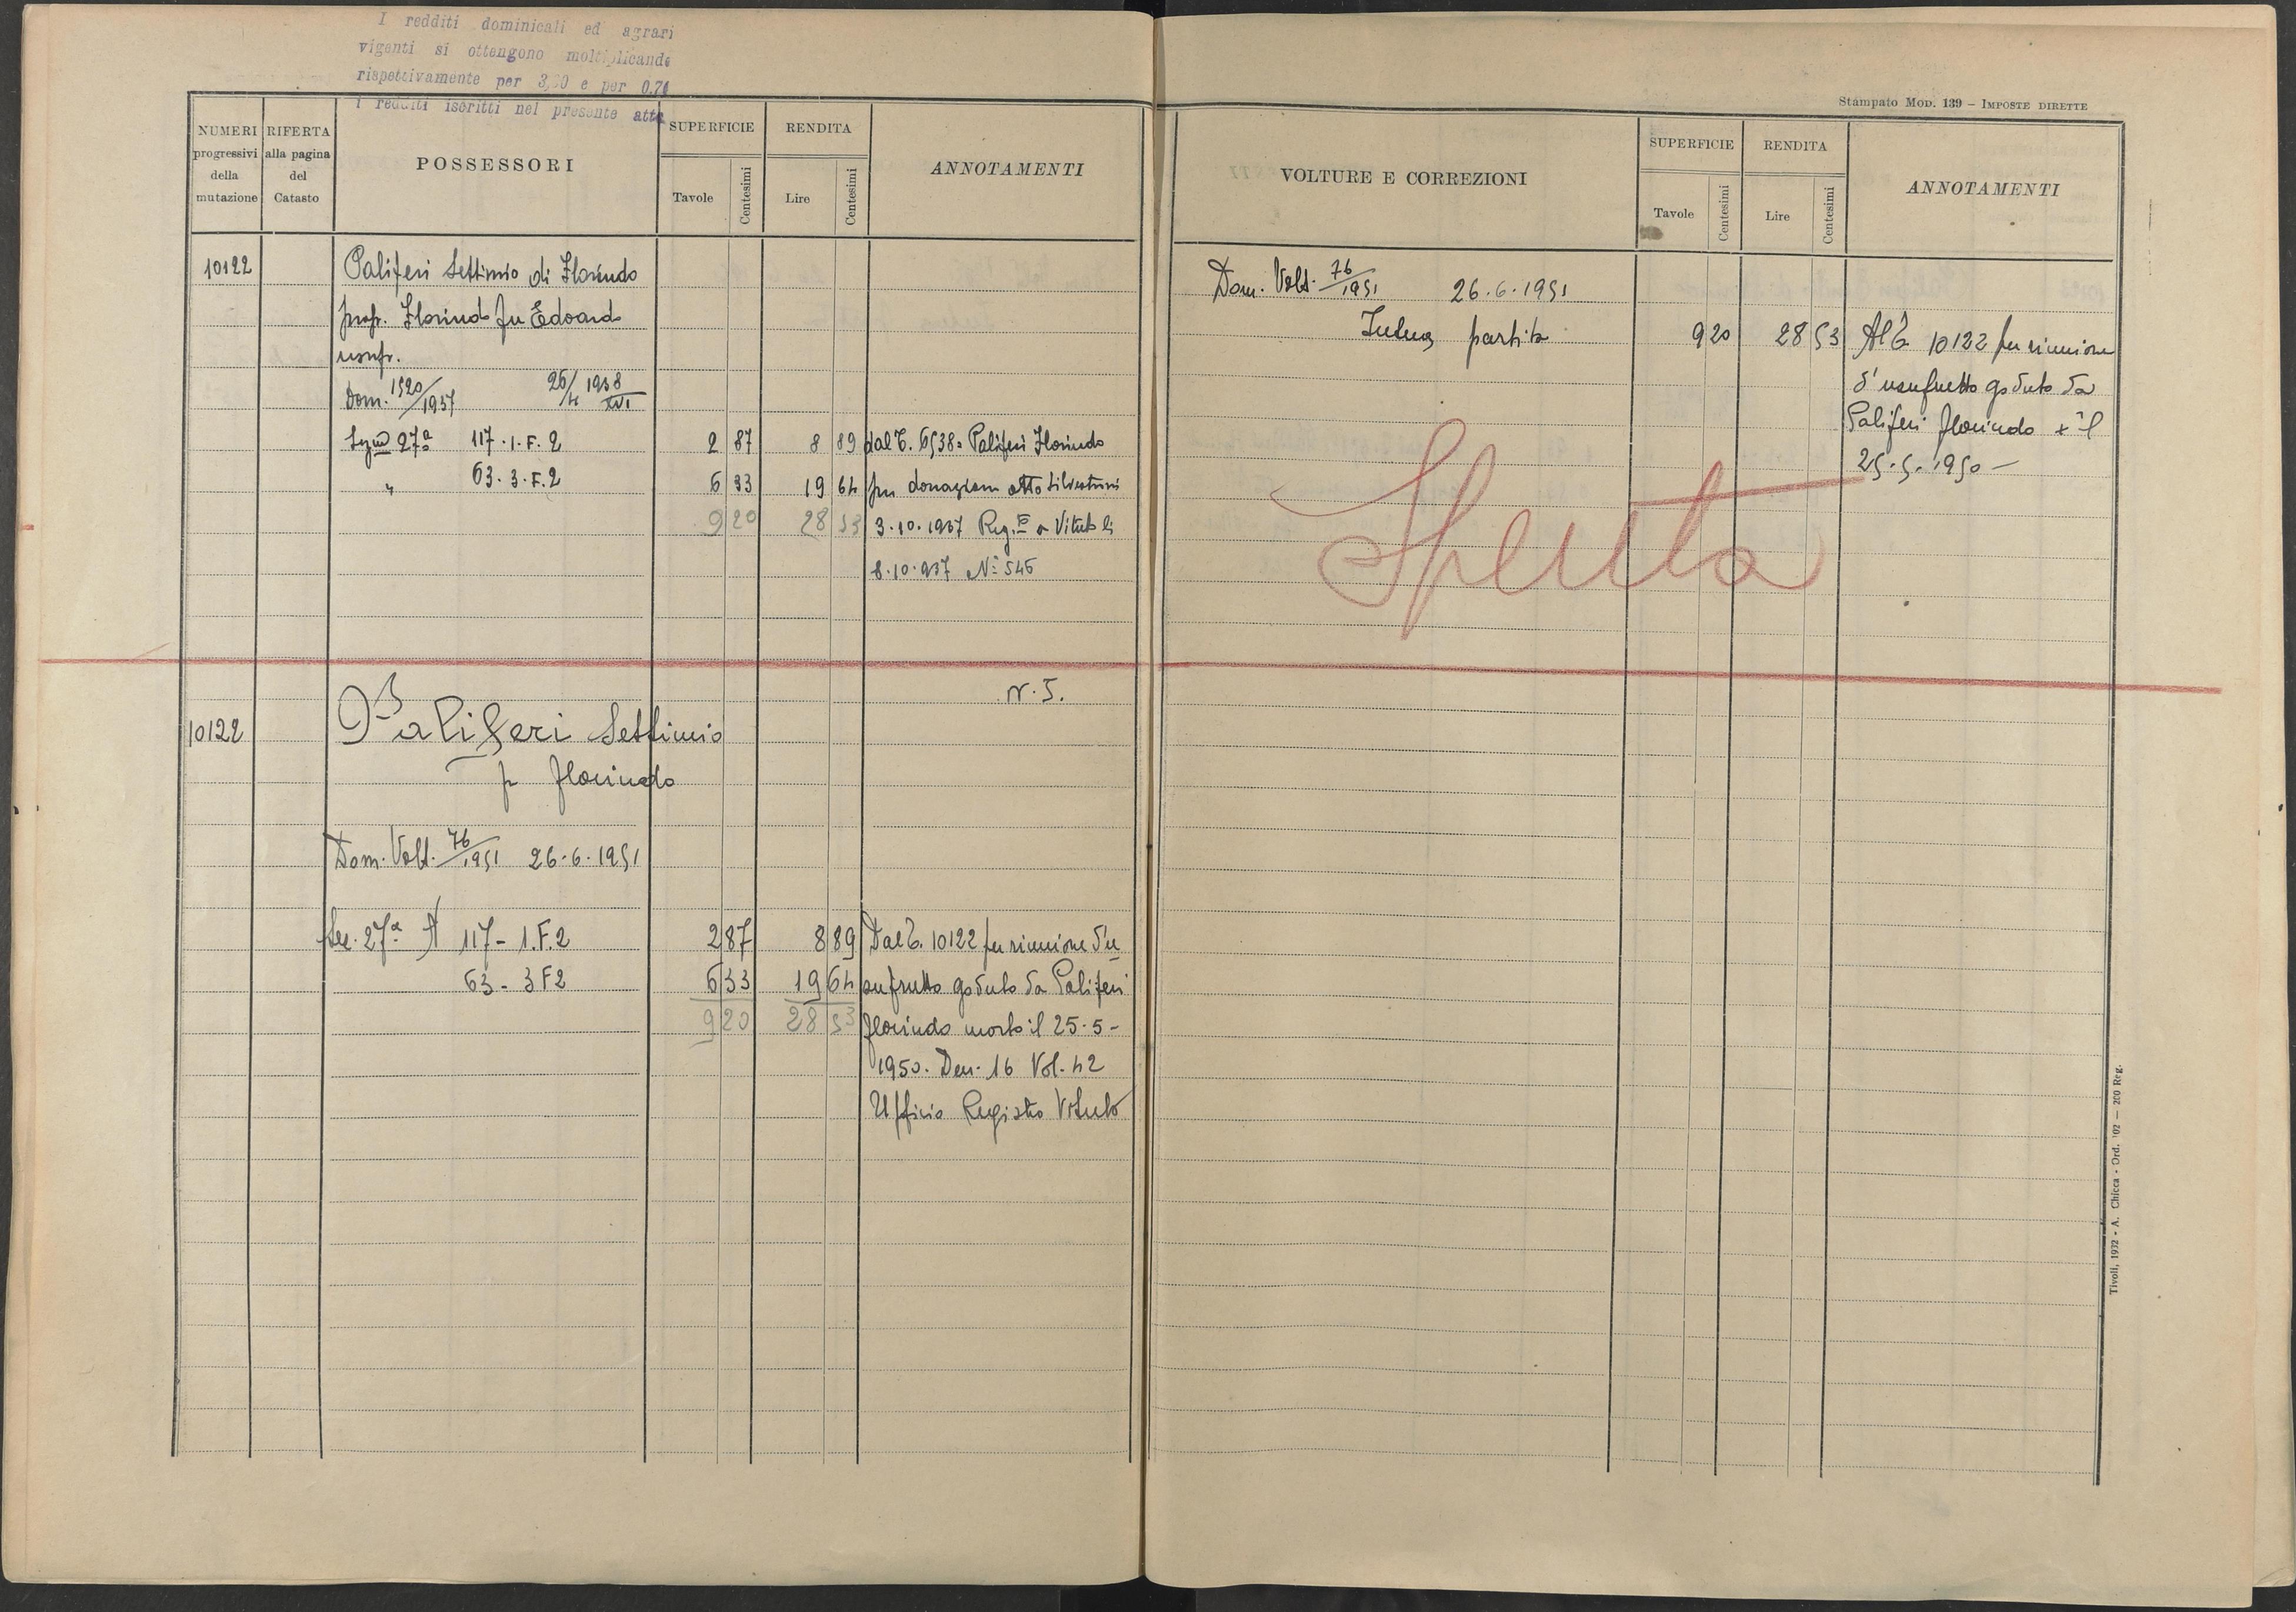 I redditi dominicali ed agrari
vigenti si ottengono moltiplicando
rispettivamente per 3,20 e per 0.70
i redditi iscritti nel presente atto
NUMERI progressivi della mutazione
RIFERTA alla pagina del Catasto
POSSESSORI
SUPERFICIE
Tavole
Centesimi
RENDITA
Lire
Centesimi
ANNOTAMENTI
10122
Paliferi Settimio di Florindo
propr. Florindo fu Edoardo
usufr.
Dom. 1520/1937 26/4 1938 XVI
Sezne 27a 117.1.F.2 2 87 8 89 dal C. 6538= Paliferi Florindo
" 63.3.F.2 6 33 19 64 per donazione atto Silvestrini
9 20 28 53 3.10.1937 Reg.to a Vitulo li
8.10.937 No 546
N.5.
10122
Paliferi Settimio
p Florindo
Dom. Volt. 76/1951 26.6.1951
Sez. 27a A 117-1.F.2 2 87 8 89 Dal C. 10122 per riunione d'u
63-3F2 6 33 19 64 sufrutto goduto da Paliferi
9 20 28 53 Florindo morto il 25-5-
1950. Den. 16 Vol. 42
Ufficio Registro Vitulo
Stampato Mod. 139 – Imposte dirette
VOLTURE E CORREZIONI
SUPERFICIE
Tavole
Centesimi
RENDITA
Lire
Centesimi
ANNOTAMENTI
Dom. Volt. 76/1951 26.6.1951
Intera partita 9 20 28 53 Al C. 10122 per riunione
d'usufrutto goduto da
Paliferi Florindo + il
25.5.1950 –
Spenta
Tivoli, 1932 - A. Chicca - Ord. '02 — 200 Reg.